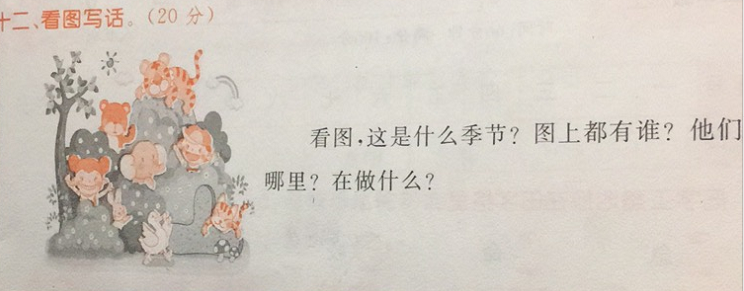 十二、看图写话。(20 分)
看图,这是什么季节?图上都有谁?他们
哪里?在做什么?